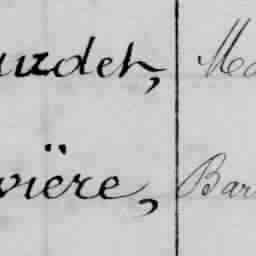 uzdet, Ma
vière, Bar